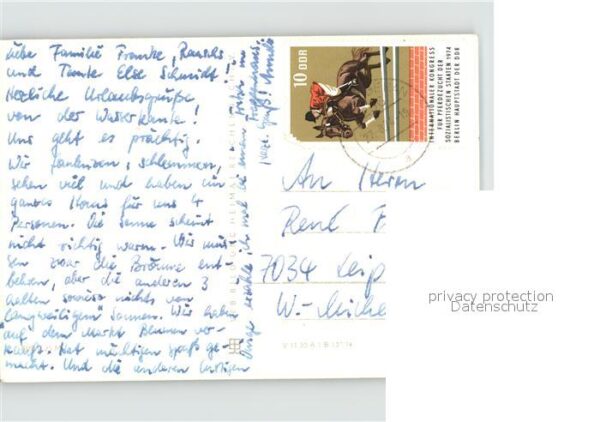 Liebe Familie Franke, Rauschs
und Tante Else Schmidt!
Herzliche Urlaubsgrüße
von der Wasserkante!
Uns geht es prächtig.
Wir faulenzen, schlemmen,
sehen viel und haben ein
ganzes Haus für uns 4
Personen. Die Sonne scheint
nicht richtig warm. Wir müs
sen zwar die Bräune ent-
behren, aber die anderen 3
halten sowieso nichts vom
"langweiligen" Sonnen. Wir haben
auf dem Markt Blumen ver-
kauft. Hat mächtigen Spaß ge-
macht. Und die anderen lustigen
Dinge erzähle ich mal bei einem
10 DDR
INTERNATIONALER KONGRESS
FÜR PFERDEZUCHT DER
SOZIALISTISCHEN STAATEN 1974
BERLIN HAUPTSTADT DER DDR
An Herrn
René F
7034 Leip
W.-Miche
privacy protection
Datenschutz